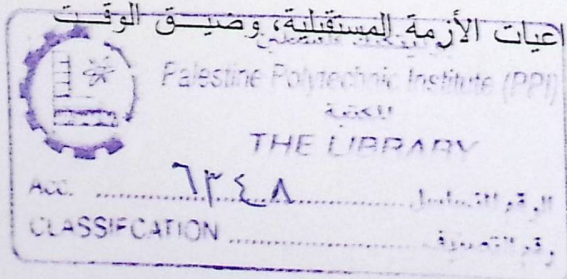 اعيات الأزمة المستقبلية، وضيق الوقت
Palestine Polytechnic Institute (PPI)
المكتبة
THE LIBRARY
Acc. ٦٣٤٨ الرقم المتسلسل
CLASSIFCATION رقم التصنيف